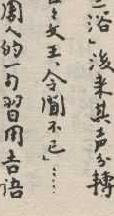 一浴」後来其声分轉
文王、令聞不已」……
周人的一句習用吉語